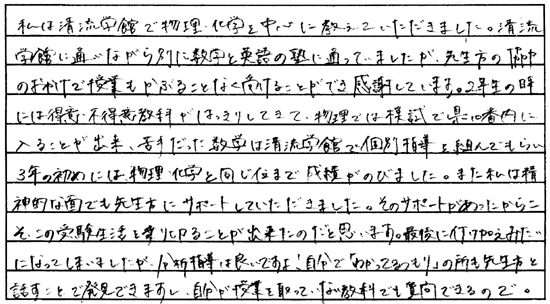 私は清流学館で物理・化学を中心に教えていただきました。清流
学館に通いながら別に数学と英語の塾に通っていましたが、先生方の協力
のおかげで授業もかぶることなく受けることができ感謝しています。2年生の時
には得意・不得意教科がはっきりしてきて、物理では模試で県10番内に
入ることが出来、苦手だった数学は清流学館で個別指導を組んでもらい
3年の初めには、物理・化学と同じ位まで成績がのびました。また私は精
神的な面でも先生方にサポートしていただきました。そのサポートがあったからこ
そ、この受験生活を乗り切ることが出来たのだと思います。最後に付け加えみたい
になってしまいましたが、分析指導は良いですよ!自分で「わかってるつもり」の所も先生方と
話すことで発見できますし、自分が授業を取っていない教科でも質問できるので。